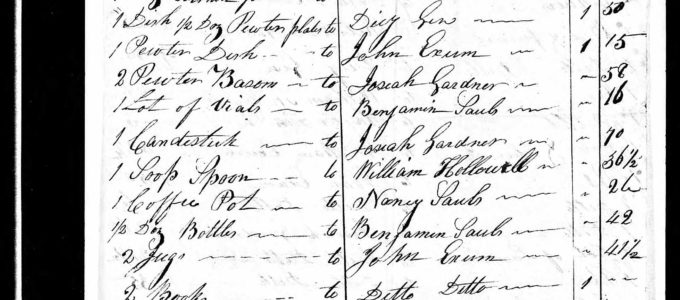 1 Dish 1/2 Doz Pewter plates to Dicy Gen 1 50
1 Pewter Dish to John Exum 1 15
2 Pewter Basons to Josiah Gardner " 58
1 Lot of Vials to Benjamin Sauls " 16
1 Candestick to Josiah Gardner " 70
1 Soop Spoon to William Hollowell " 36 1/2
1 Coffie Pot to Nancy Sauls "
1/2 Doz Bottles to Benjamin Sauls " 42
2 Jugs to John Exum " 41 1/2
2 Books to Ditto Ditto 1 "